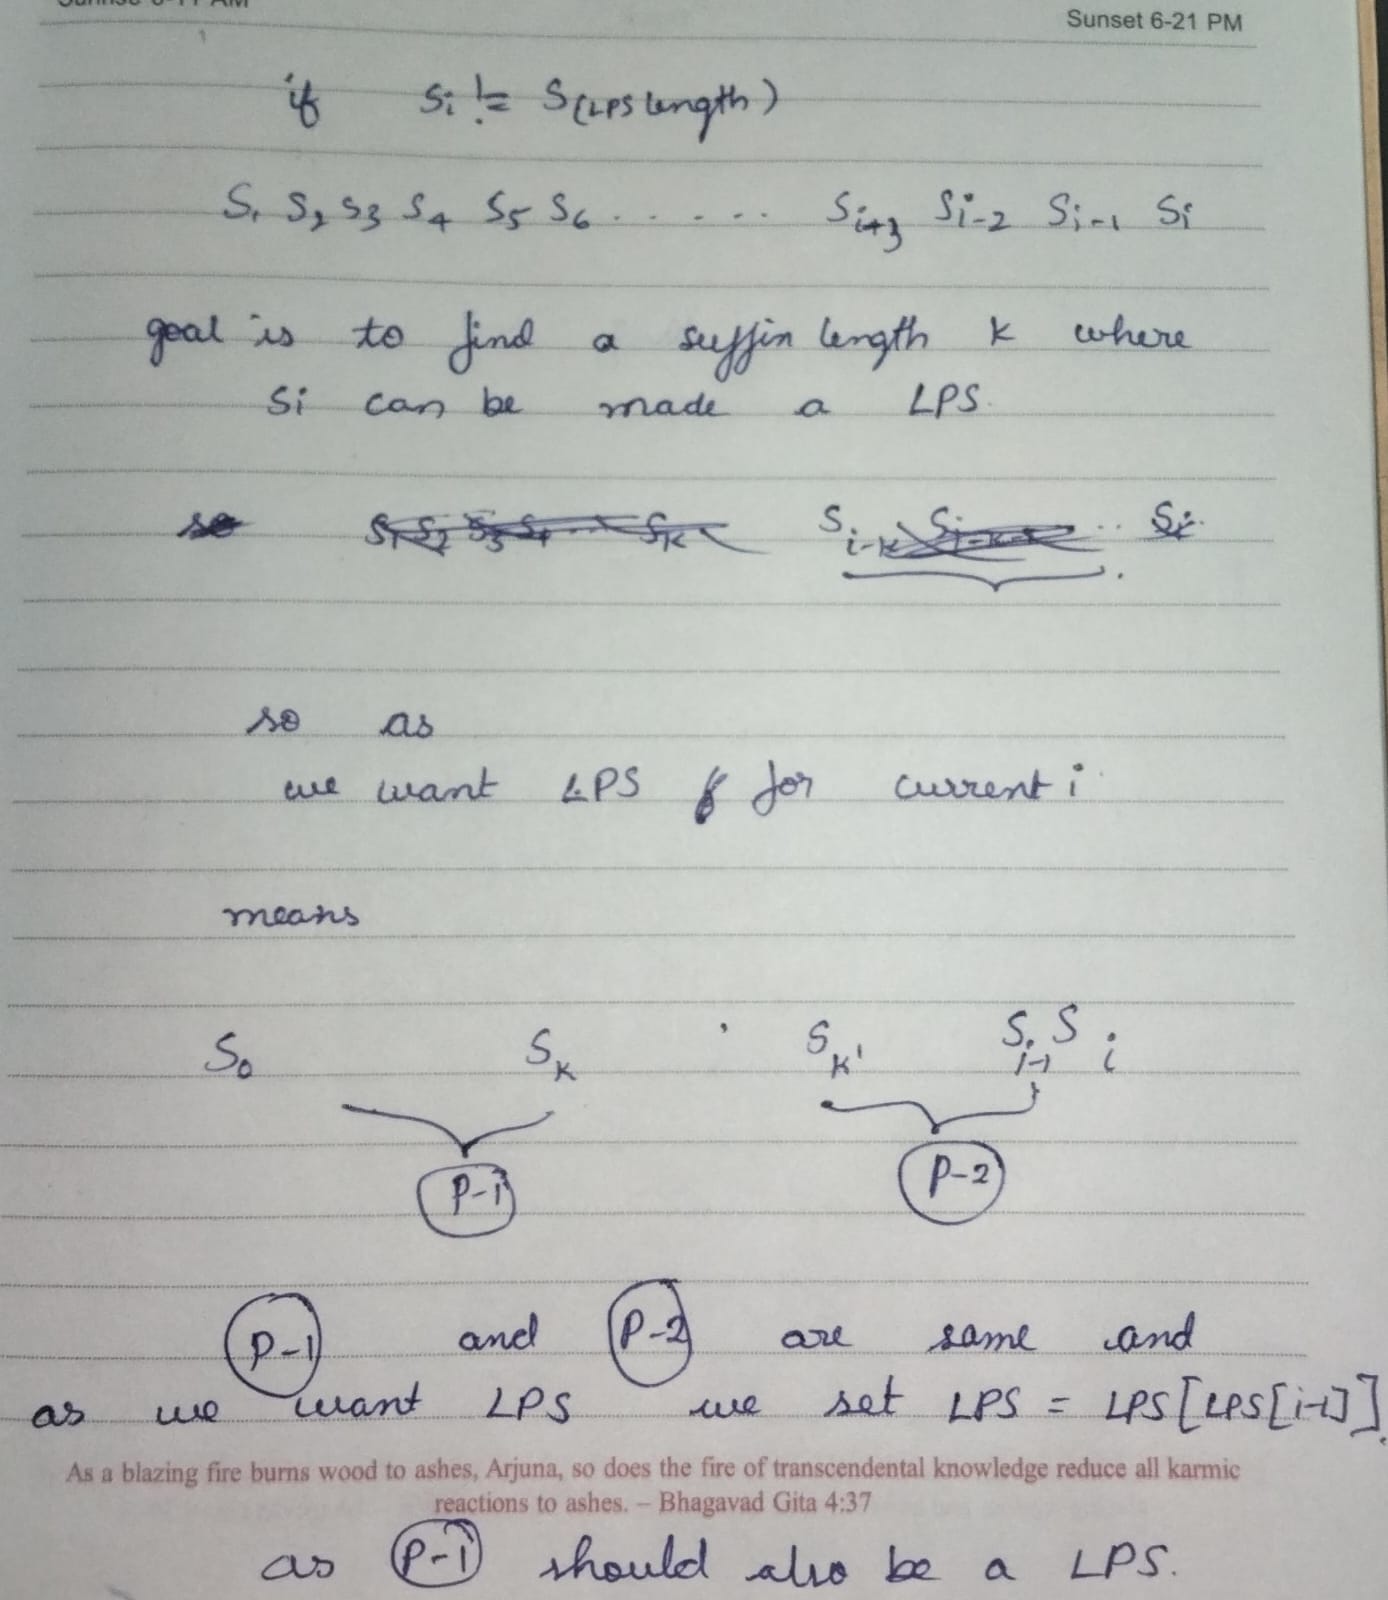 Sunset 6-21 PM
if Si != S(LPS length)
S1 S2 S3 S4 S5 S6 . . . . . . Si+3 Si-2 Si-1 Si
goal is to find a suffin length k where
Si can be made a LPS.
so S1 S2 S3 S4 ... Sk Si-k .. Si
so as
we want LPS for current i
means
S0 Sk Sk' Si-1 Si
P-1 P-2
P-1 and P-2 are same and
as we want LPS we set LPS = LPS[LPS[i-1]].
As a blazing fire burns wood to ashes, Arjuna, so does the fire of transcendental knowledge reduce all karmic
reactions to ashes. – Bhagavad Gita 4:37
as P-1 should also be a LPS.